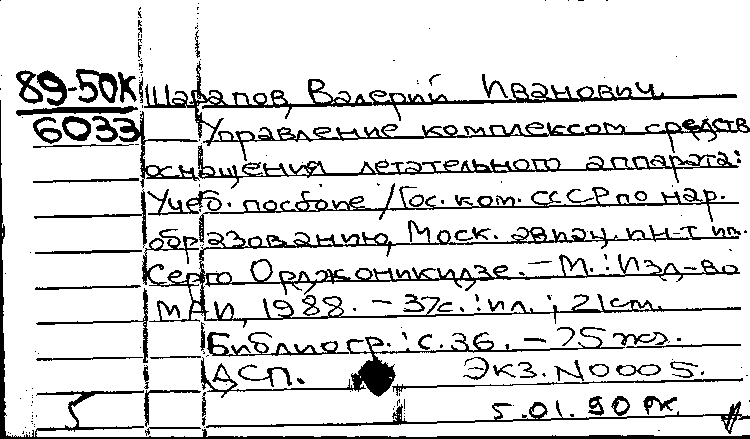 89-50К Шарапов, Валерий Иванович.
6033 Управление комплексом средств
оснащения летательного аппарата:
Учеб. пособие / Гос. ком. СССР по нар.
образованию, Моск. авиац. ин-т им.
Серго Орджоникидзе. — М. : Изд-во
МАИ, 1988. — 37с. : ил. ; 21см.
Библиогр. : с. 36. — 75 экз.
ДСП. Экз. N0005.
5.01.90 РК